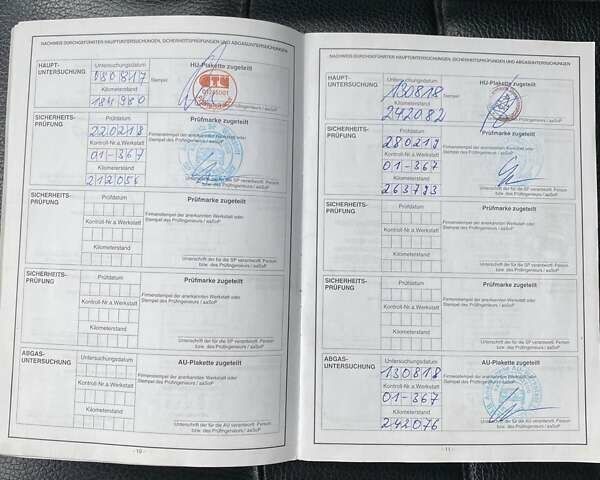 NACHWEIS DURCHGEFÜHRTER HAUPTUNTERSUCHUNGEN, SICHERHEITSPRÜFUNGEN UND ABGASUNTERSUCHUNGEN
HAUPT-
UNTERSUCHUNG
Untersuchungsdatum
080817
Kilometerstand
184980
Stempel
HU-Plakette zugeteilt
GTÜ
SICHERHEITS-
PRÜFUNG
Prüfdatum
220218
Kontroll-Nr.a.Werkstatt
01-367
Kilometerstand
212056
Prüfmarke zugeteilt
Firmenstempel der anerkannten Werkstatt oder
Stempel des Prüfingenieurs / aaSoP
SICHERHEITS-
PRÜFUNG
Prüfdatum
Kontroll-Nr.a.Werkstatt
Kilometerstand
Prüfmarke zugeteilt
Firmenstempel der anerkannten Werkstatt oder
Stempel des Prüfingenieurs / aaSoP
Unterschrift der für die SP verantwortl. Person
bzw. des Prüfingenieurs / aaSoP
SICHERHEITS-
PRÜFUNG
Prüfdatum
Kontroll-Nr.a.Werkstatt
Kilometerstand
Prüfmarke zugeteilt
Firmenstempel der anerkannten Werkstatt oder
Stempel des Prüfingenieurs / aaSoP
Unterschrift der für die SP verantwortl. Person
bzw. des Prüfingenieurs / aaSoP
ABGAS-
UNTERSUCHUNG
Untersuchungsdatum
Kontroll-Nr.a.Werkstatt
Kilometerstand
AU-Plakette zugeteilt
Firmenstempel der anerkannten Werkstatt oder
Stempel des Prüfingenieurs / aaSoP
Unterschrift der für die AU verantwortl. Person
bzw. des Prüfingenieurs / aaSoP
- 10 -
NACHWEIS DURCHGEFÜHRTER HAUPTUNTERSUCHUNGEN, SICHERHEITSPRÜFUNGEN UND ABGASUNTERSUCHUNGEN
HAUPT-
UNTERSUCHUNG
Untersuchungsdatum
130818
Kilometerstand
242082
Stempel
HU-Plakette zugeteilt
SICHERHEITS-
PRÜFUNG
Prüfdatum
280219
Kontroll-Nr.a.Werkstatt
01-367
Kilometerstand
263793
Prüfmarke zugeteilt
Firmenstempel der anerkannten Werkstatt oder
Stempel des Prüfingenieurs / aaSoP
Unterschrift der für die SP verantwortl. Person
bzw. des Prüfingenieurs / aaSoP
SICHERHEITS-
PRÜFUNG
Prüfdatum
Kontroll-Nr.a.Werkstatt
Kilometerstand
Prüfmarke zugeteilt
Firmenstempel der anerkannten Werkstatt oder
Stempel des Prüfingenieurs / aaSoP
Unterschrift der für die SP verantwortl. Person
bzw. des Prüfingenieurs / aaSoP
SICHERHEITS-
PRÜFUNG
Prüfdatum
Kontroll-Nr.a.Werkstatt
Kilometerstand
Prüfmarke zugeteilt
Firmenstempel der anerkannten Werkstatt oder
Stempel des Prüfingenieurs / aaSoP
Unterschrift der für die SP verantwortl. Person
bzw. des Prüfingenieurs / aaSoP
ABGAS-
UNTERSUCHUNG
Untersuchungsdatum
130818
Kontroll-Nr.a.Werkstatt
01-367
Kilometerstand
242076
AU-Plakette zugeteilt
Firmenstempel der anerkannten Werkstatt oder
Stempel des Prüfingenieurs / aaSoP
Unterschrift der für die AU verantwortl. Person
bzw. des Prüfingenieurs / aaSoP
- 11 -